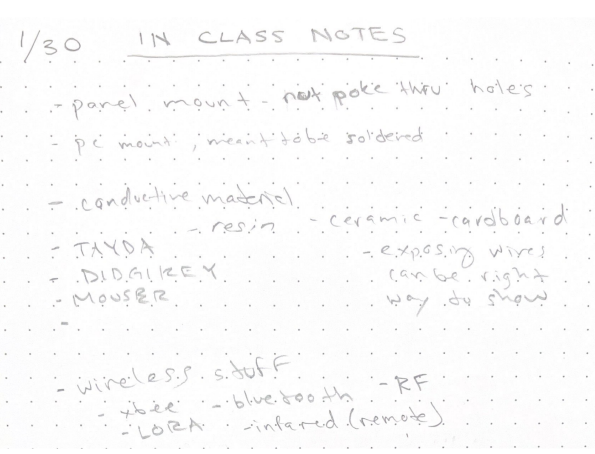 1/30 IN CLASS NOTES
- panel mount - not poke thru holes
- pc mount, meant to be soldered
- conductive materiel
- resin - ceramic - cardboard
- TAYDA
- DIDGIKEY
- MOUSER
-
- exposing wires
can be right
way to show
- wireless stuff
- xbee - bluetooth - RF
- LORA - infared (remote)